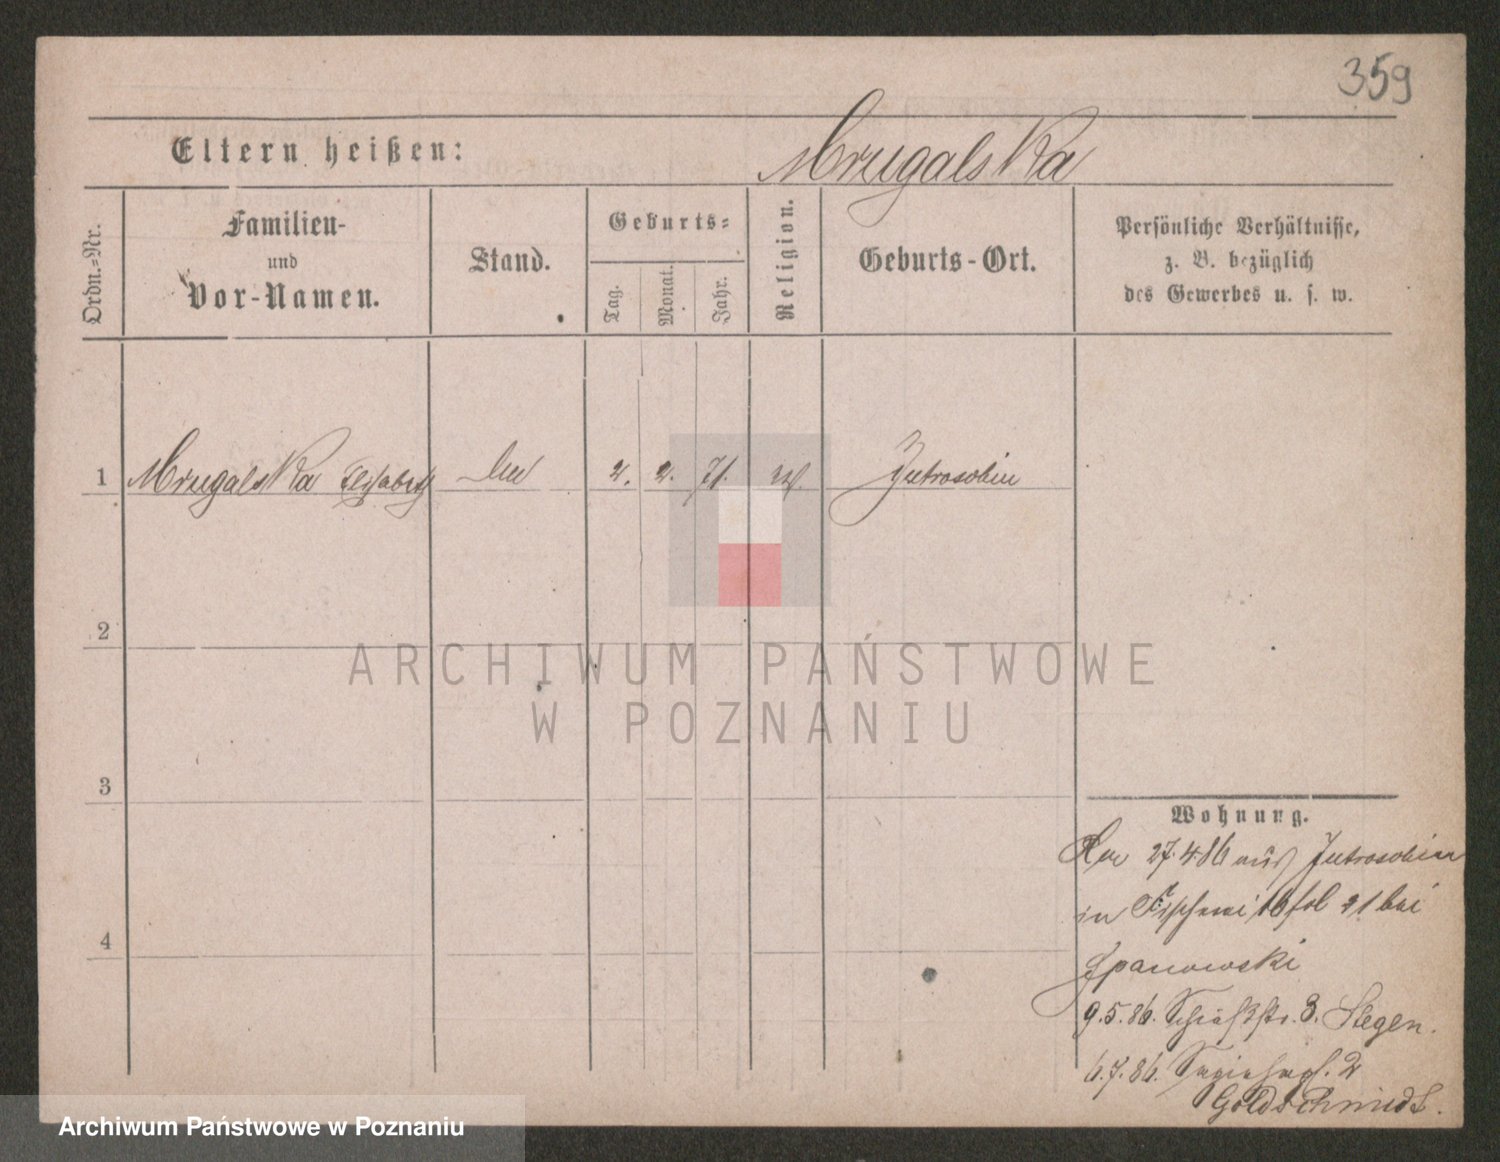 359
Eltern heißen: Mrugalska
Ordn.-Nr.
Familien-
und
Vor-Namen.
Stand.
Geburts-
Tag.
Monat.
Jahr.
Religion.
Geburts-Ort.
Persönliche Verhältnisse,
z. B. bezüglich
des Gewerbes u. s. w.
1 Mrugalska Elisabeth 2. 2. 71. Jutroschin
2
ARCHIWUM PAŃSTWOWE
W POZNANIU
3
Wohnung.
27.4.86 aus Jutroschin
in Fischerei 16 21 bei
4
Spanowski
9.5.86. 3. Stegen.
6.7.86. 2
Goldschmidt.
Archiwum Państwowe w Poznaniu